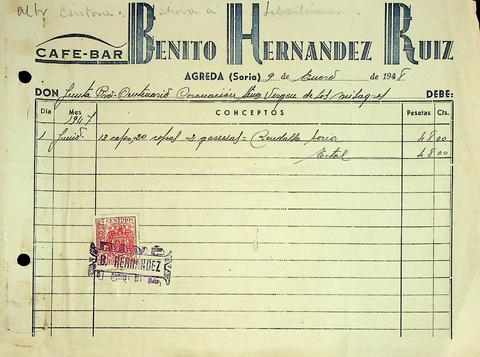 CAFE-BAR BENITO HERNANDEZ RUIZ
AGREDA (Soria) 9 de Enero de 1948
DON Junta Pro-Centenario Coronación Virgen de los Milagros DEBE:
Día Mes CONCEPTOS Pesetas Cts.
1947
1 Junio 12 cafes, 20 copas 2 gaseosas - Soria 48 00
Total 48 00
25 CENTIMOS
B. HERNANDEZ